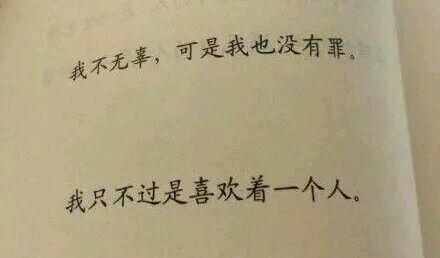 我不无辜，可是我也没有罪。
我只不过是喜欢着一个人。